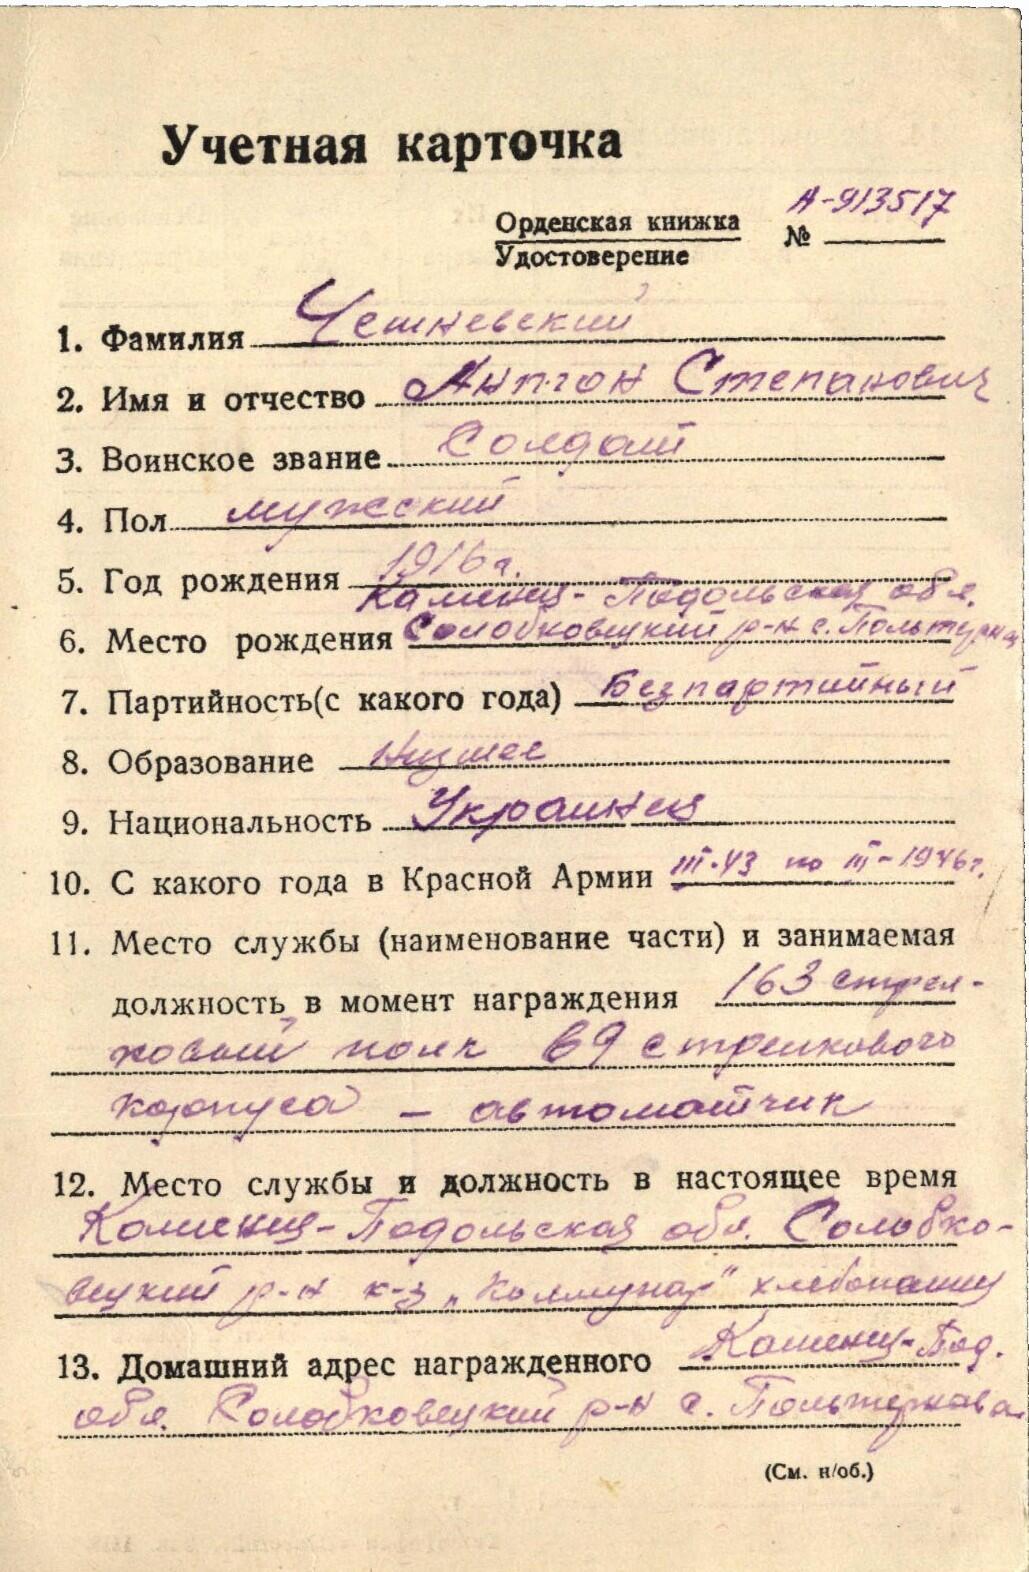 Учетная карточка
А-913517
Орденская книжка №
Удостоверение
1. Фамилия Чешневский
2. Имя и отчество Антон Степанович
3. Воинское звание Солдат
4. Пол мужский
5. Год рождения 1916 г.
Каменец-Подольская обл.
6. Место рождения Солобковецкий р-н с.
7. Партийность(с какого года) Безпартийный
8. Образование Низшее
9. Национальность Украинец
10. С какого года в Красной Армии III-43 по III-1946г.
11. Место службы (наименование части) и занимаемая
должность в момент награждения 163 стрел-
ковый полк 69 стрелкового
корпуса – автоматчик
12. Место службы и должность в настоящее время
Каменец-Подольская обл. Солобко-
вецкий р-н к-з „Коммунар" хлебопашец
13. Домашний адрес награжденного Каменец-Под.
обл. Солобковецкий р-н с.
(См. н/об.)